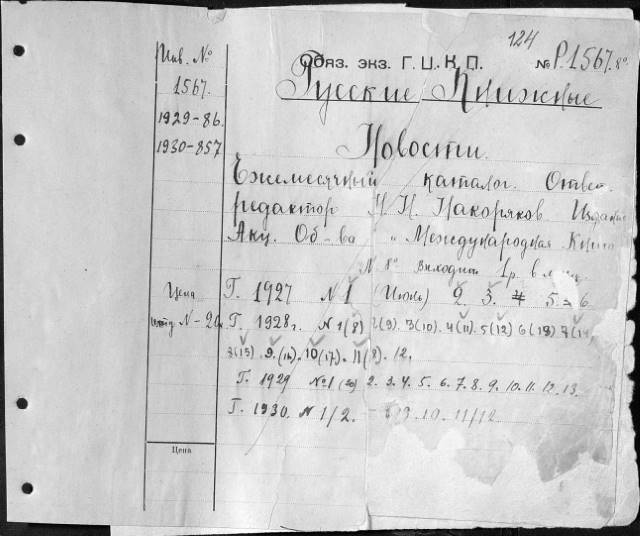 124
Инв. №
1567.
1929-86.
1930-857
Обяз. экз. Г. Ц. К. П. № Р. 1567. 8°
Русские Книжные
Новости.
Ежемесячный каталог. Ответ.
редактор Н. Н. Накоряков. Издание
Акц. Об-ва „Международная Книга
№ 8° выходит 1 р. в
Цена
Г. 1927 № 1 (Июль) 2. 3. 4 5 = 6
№ - 20к
Г. 1928 г. № 1 (8) 2 (9). 3 (10). 4 (11). 5 (12) 6 (13) 7 (14),
8 (15) 9. (16). 10 (17). 11 (8). 12.
Г. 1929 № 1 (20) 2. 3. 4. 5. 6. 7. 8. 9. 10. 11. 12. 13.
Г. 1930. № 1/2. 9. 10. 11/12
Цена